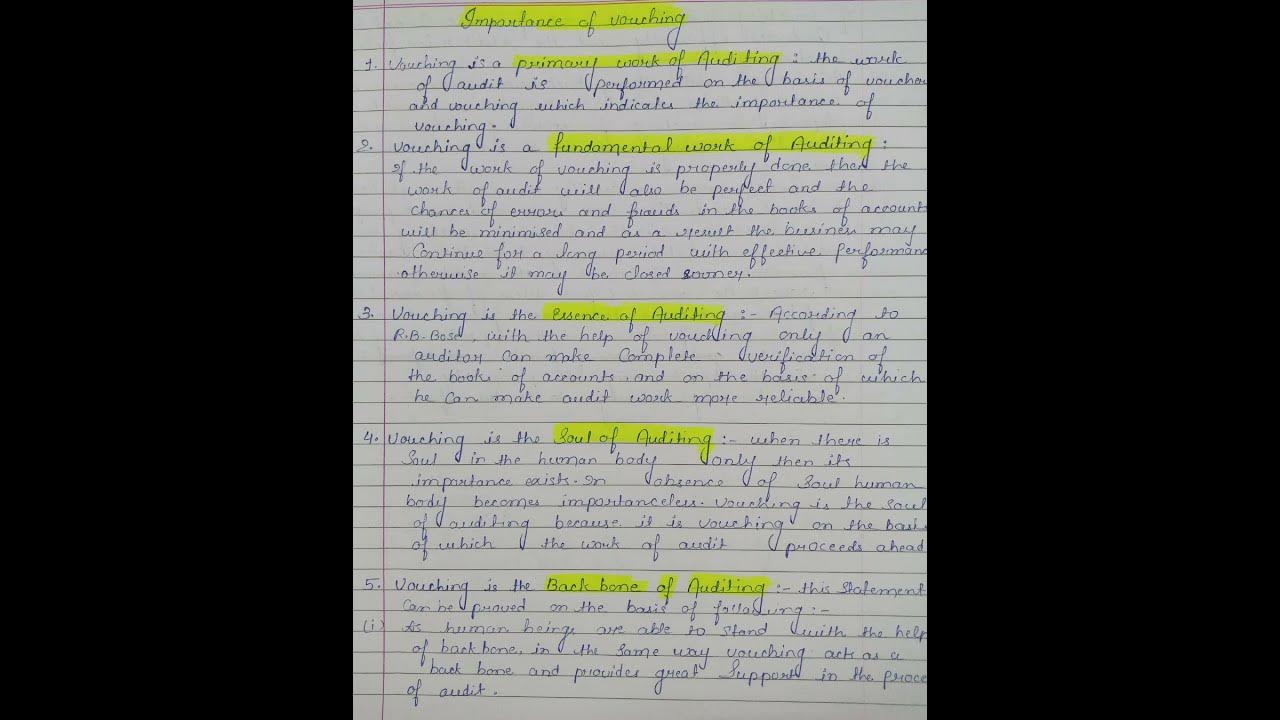 Importance of vouching
1. Vouching is a primary work of Auditing : the work
of audit is performed on the basis of voucher
and vouching which indicates the importance of
vouching.
2. Vouching is a fundamental work of Auditing :
If the work of vouching is properly done then the
work of audit will also be perfect and the
chances of errors and frauds in the books of account
will be minimised and as a result the business may
Continue for a long period with effective performanc
otherwise it may be closed sooner.
3. Vouching is the Essence of Auditing :- According to
R.B. Bose, with the help of vouching only an
auditor can make Complete verification of
the books of accounts and on the basis of which
he Can make audit work more reliable.
4. Vouching is the Soul of Auditing :- when there is
Soul in the human body only then its
importance exists. In absence of Soul human
body becomes importanceless. Vouching is the Soul
of auditing because it is vouching on the basis
of which the work of audit proceeds ahead
5. Vouching is the Back bone of Auditing :- this Statement
Can be proved on the basis of following :-
(i) As human beings are able to stand with the help
of back bone, in the same way vouching acts as a
back bone and provides great Support in the proce
of audit.